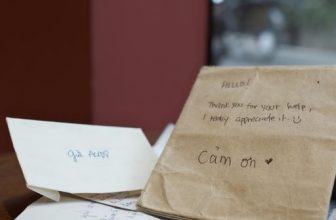 Hello!
Thank you for your help,
I really appreciate it. :)
Cảm ơn ♥